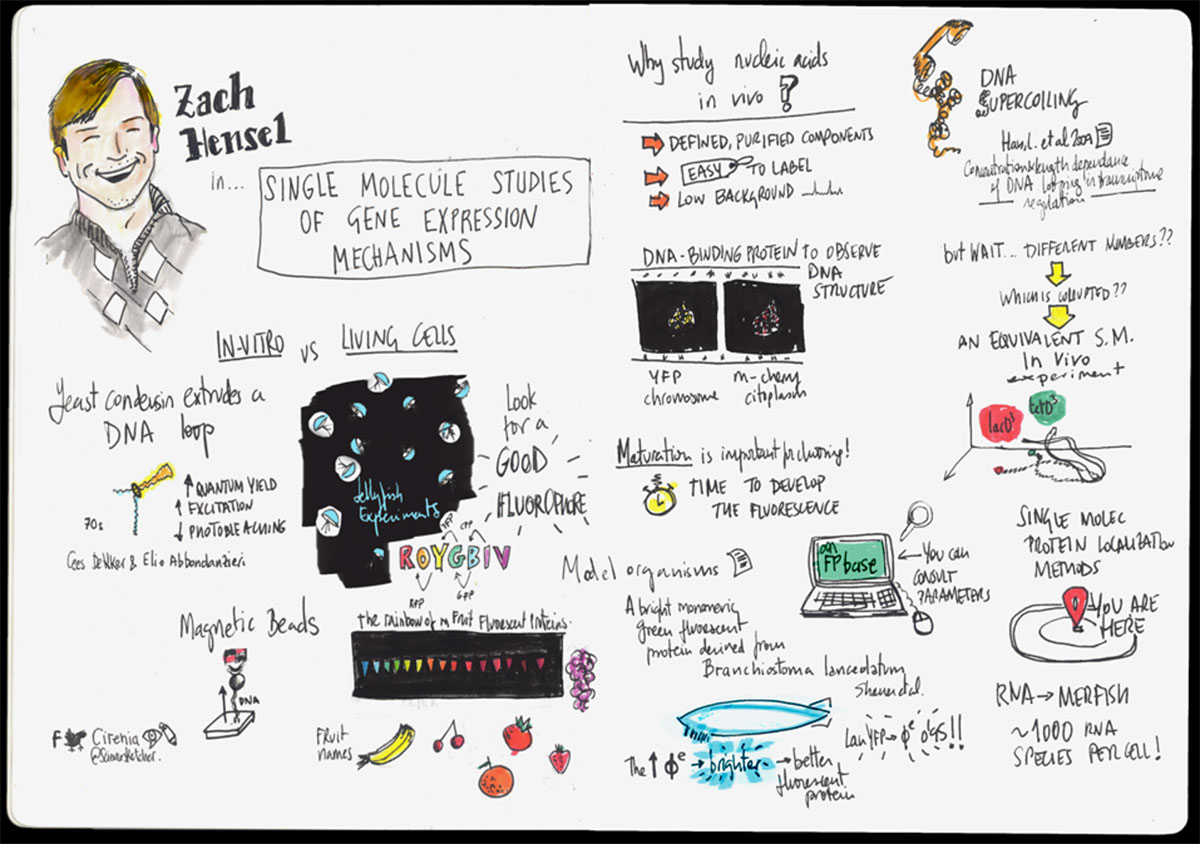 Zach
Hensel
in...
SINGLE MOLECULE STUDIES
OF GENE EXPRESSION
MECHANISMS
IN-VITRO vs LIVING CELLS
Yeast condensin extrudes a
DNA loop
QUANTUM YIELD
EXCITATION
PHOTOBLEACHING
70s
Cees Dekker & Elio Abbondanzieri
Jellyfish
Experiments
Look
for a
GOOD
FLUOROPHORE
YFP CFP
ROYGBIV
RFP GFP
Magnetic Beads
DNA
The rainbow of m Fruit Fluorescent Proteins.
Fruit
names
Cirenia
@Sciencesketcher.
Why study nucleic acids
in vivo?
DEFINED, PURIFIED COMPONENTS
EASY TO LABEL
LOW BACKGROUND
DNA-BINDING PROTEIN TO OBSERVE
DNA
STRUCTURE
YFP
chromosome
m-cherry
citoplasm
Maturation is important for chusing!
TIME TO DEVELOP
THE FLUORESCENCE
Model organisms
FPbase
You can
CONSULT
PARAMETERS
A bright monomeric
green fluorescent
protein derived from
Branchiostoma lanceolatum
The ↑ ϕe → brighter → better
fluorescent
protein
LanYFP → ϕe 0'95!!
DNA
SUPERCOILING
Han, L. et al 2009
Concentration & length dependance
of DNA looping in transcriptive
regulation
but WAIT... DIFFERENT NUMBERS??
WHICH IS CORRUPTED??
AN EQUIVALENT S.M.
In Vivo
experiment
lacO³
tetO³
SINGLE MOLEC
PROTEIN LOCALIZATION
METHODS
YOU ARE
HERE
RNA → MERFISH
~1000 RNA
SPECIES PER CELL!